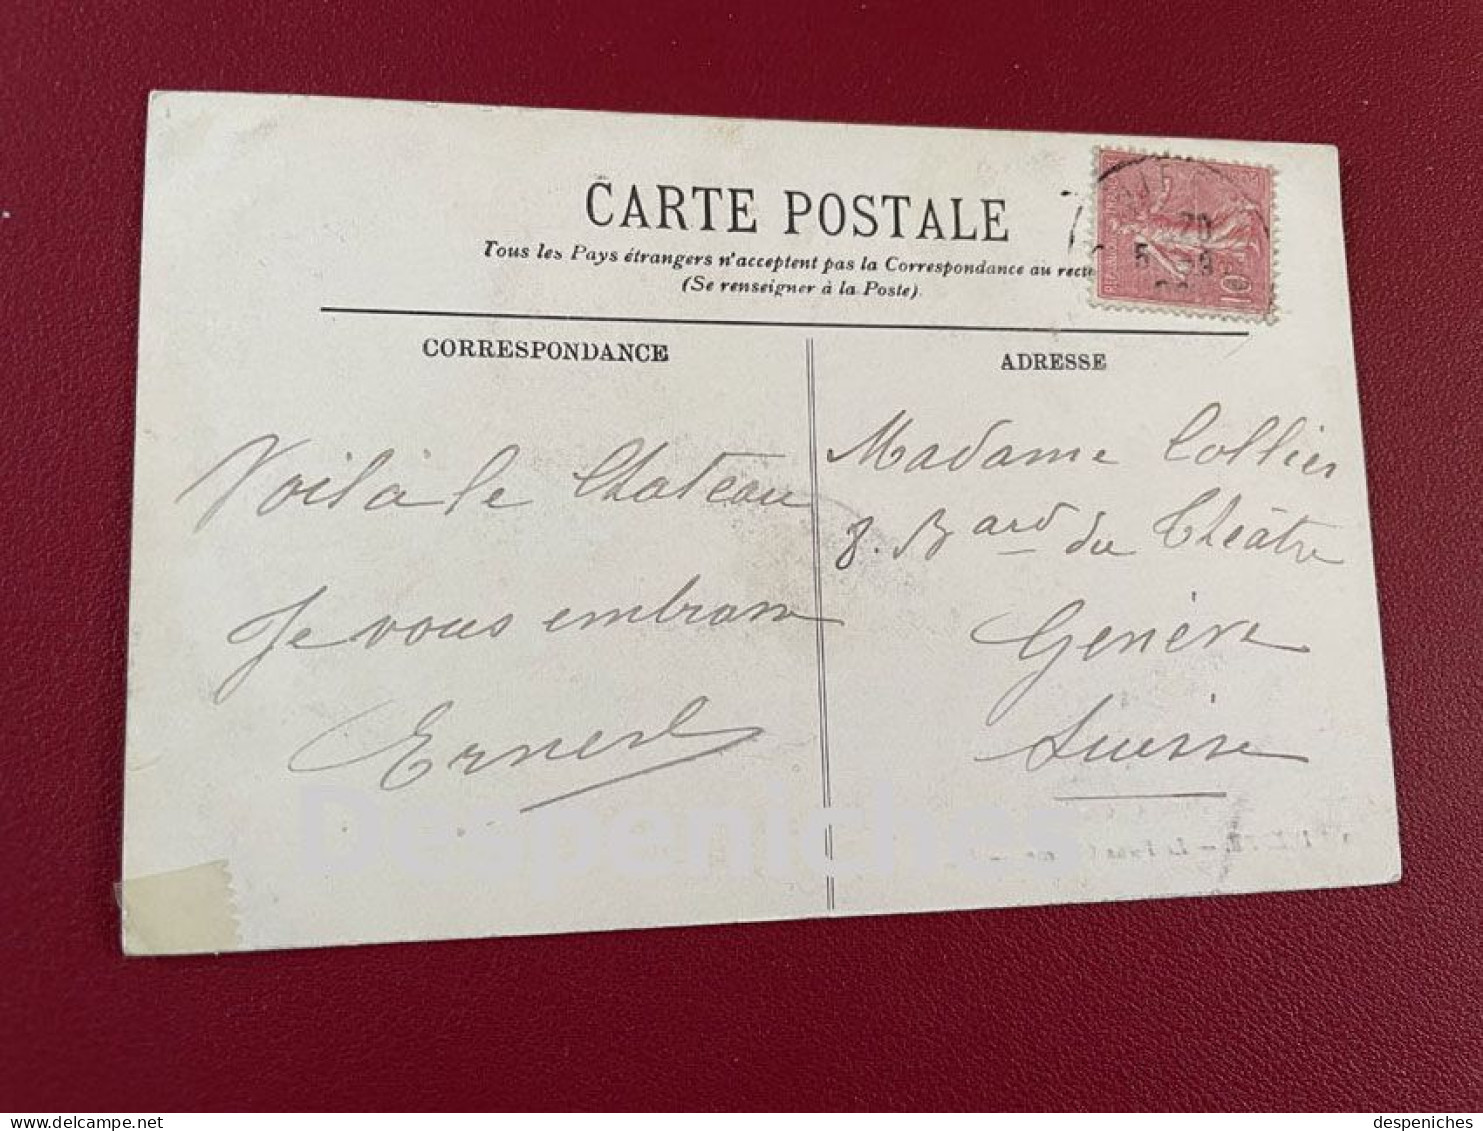 CARTE POSTALE
Tous les Pays étrangers n'acceptent pas la Correspondance au recto
(Se renseigner à la Poste).
CORRESPONDANCE
ADRESSE
Voilà le Chateau
Je vous embrasse
Ernest
Madame Collier
8. Bard du Théâtre
Genève
Suisse
10
Despeniches
delcampe.net
despeniches